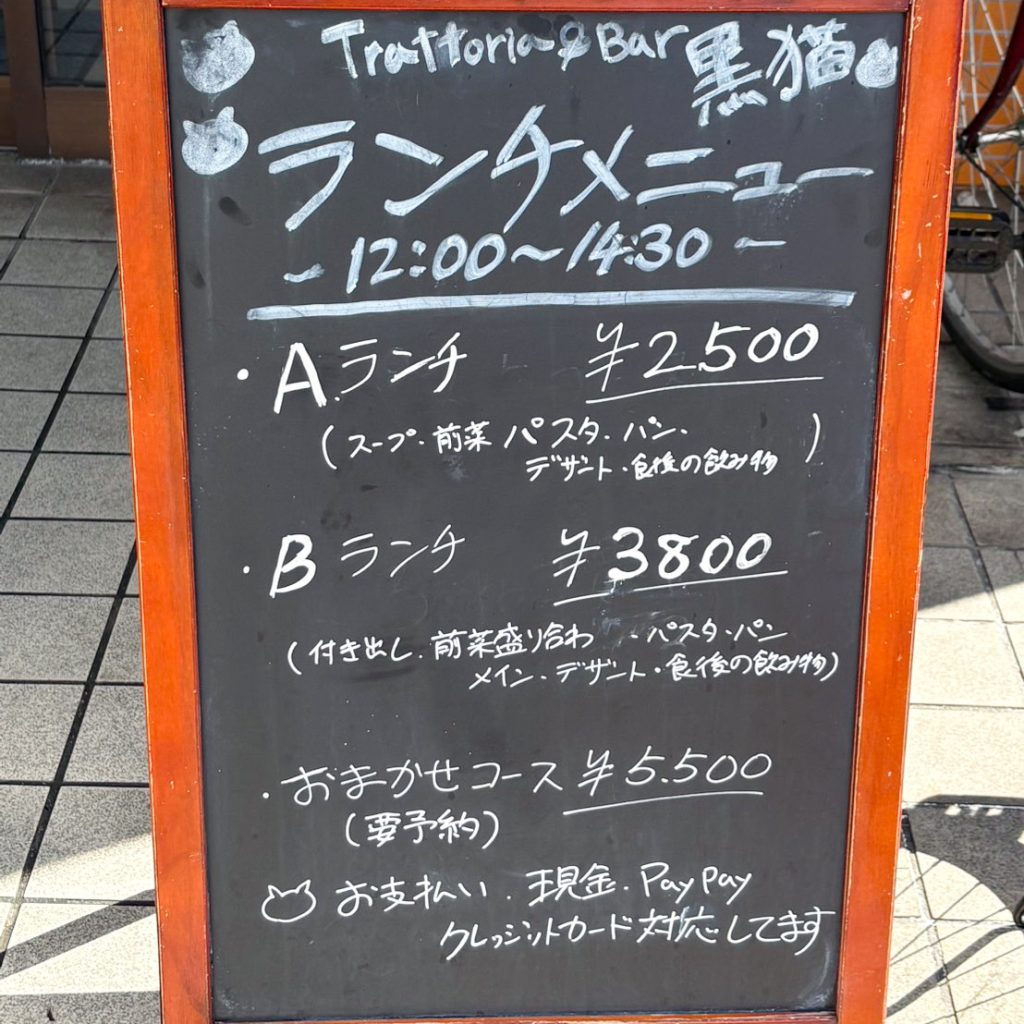 Trattoria & Bar 黒猫
ランチメニュー
~ 12:00~14:30 ~
・Aランチ ¥2,500
(スープ・前菜 パスタ・パン・
デザート・食後の飲み物)
・Bランチ ¥3800
(付き出し・前菜盛り合わ ・パスタ・パン
メイン・デザート・食後の飲み物)
・おまかせコース ¥5.500
(要予約)
お支払い・現金・PayPay
クレジットカード対応してます